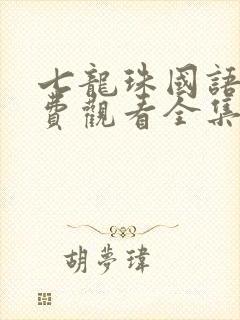 七龍珠國語
費觀看全集
胡夢瑋